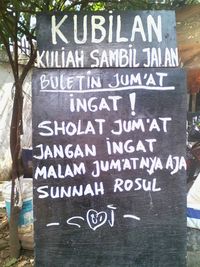 KUBILAN
KULIAH SAMBIL JALAN
BULETIN JUM'AT
INGAT!
SHOLAT JUM'AT
JANGAN INGAT
MALAM JUM'ATNYA AJA
SUNNAH ROSUL